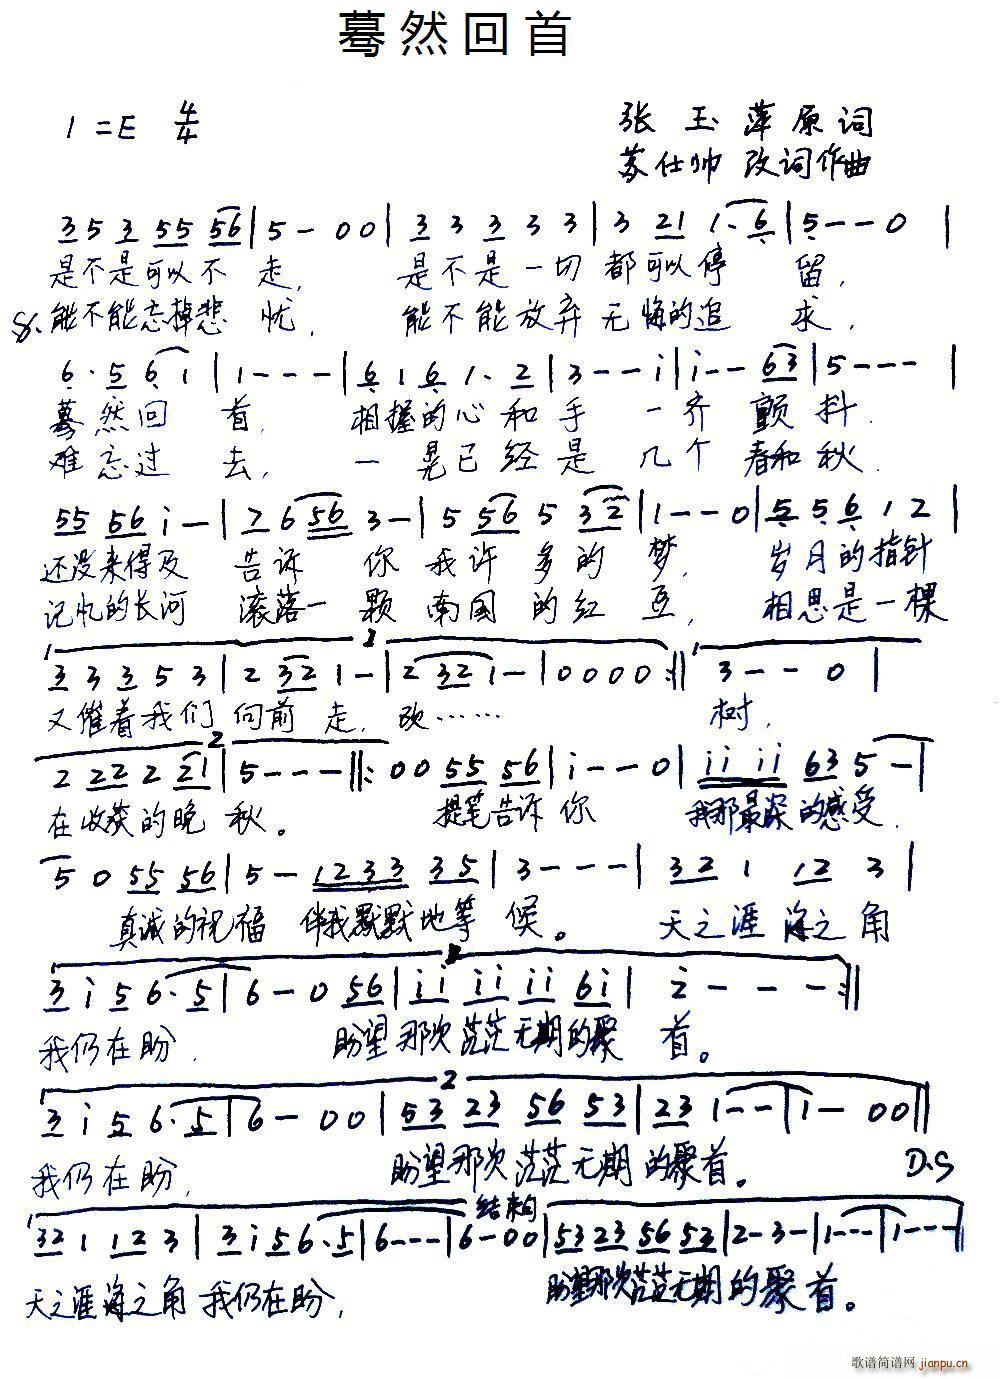 蓦然回首
1=E 4/4
张玉萍原词
苏仕帅 改词作曲
3 5 3 55 56 | 5 - 0 0 | 3 3 3 3 3 | 3 21 1. 6 | 5 - - - 0 |
是不是可以不 走, 是不是一切都可以停 留,
能不能忘掉悲 忧, 能不能放弃无悔的追 求,
6 . 5 6 1 | 1 - - - | 6 1 6 1. 2 | 3 - - i | i - - 63 | 5 - - - |
蓦然回 首, 相握的心和手 一齐 颤抖.
难忘过 去, 一晃已经是 几个 春和秋.
55 56 i - | 7 6 56 3 - | 5 56 5 32 | 1 - - 0 | 5 5 6 1 2 |
还没来得及 告诉 你 我许多的 梦, 岁月的指针
记忆的长河 滚落一 颗 南国的红 豆, 相思是一棵
1
3 3 3 5 3 | 2 32 1 - | 2 32 1 - | 0 0 0 0 :|| 3 - - 0 |
又催着我们 向前 走, 改…… 树,
2
2 22 2 21 | 5 - - - ||: 0 0 55 56 | i - - 0 | ii ii 63 5 - |
在收获的晚 秋。 提笔告诉 你 我那最深的感受,
5 0 55 56 | 5 - 1233 35 | 3 - - - | 32 1 12 3 |
真诚的祝福 伴我默默地等 候。 天之涯 海之角
3 i 5 6. 5 | 6 - 0 56 | ii ii ii 6i | 2 - - - :||
我仍在盼, 盼望那次茫茫无期的聚 首。
2
3 i 5 6. 5 | 6 - 0 0 | 53 23 56 53 | 23 1 - - | 1 - 0 0 ||
我仍在盼, 盼望那次茫茫无期的聚首。 D.S
结束句
32 1 12 3 | 3 i 5 6. 5 | 6 - - - | 6 - 0 0 | 53 23 56 52 | 2 - 3 - | 1 - - - | 1 - - - |
天之涯海之角 我仍在盼, 盼望那次茫茫无期的聚 首。
歌谱简谱网 jianpu.cn